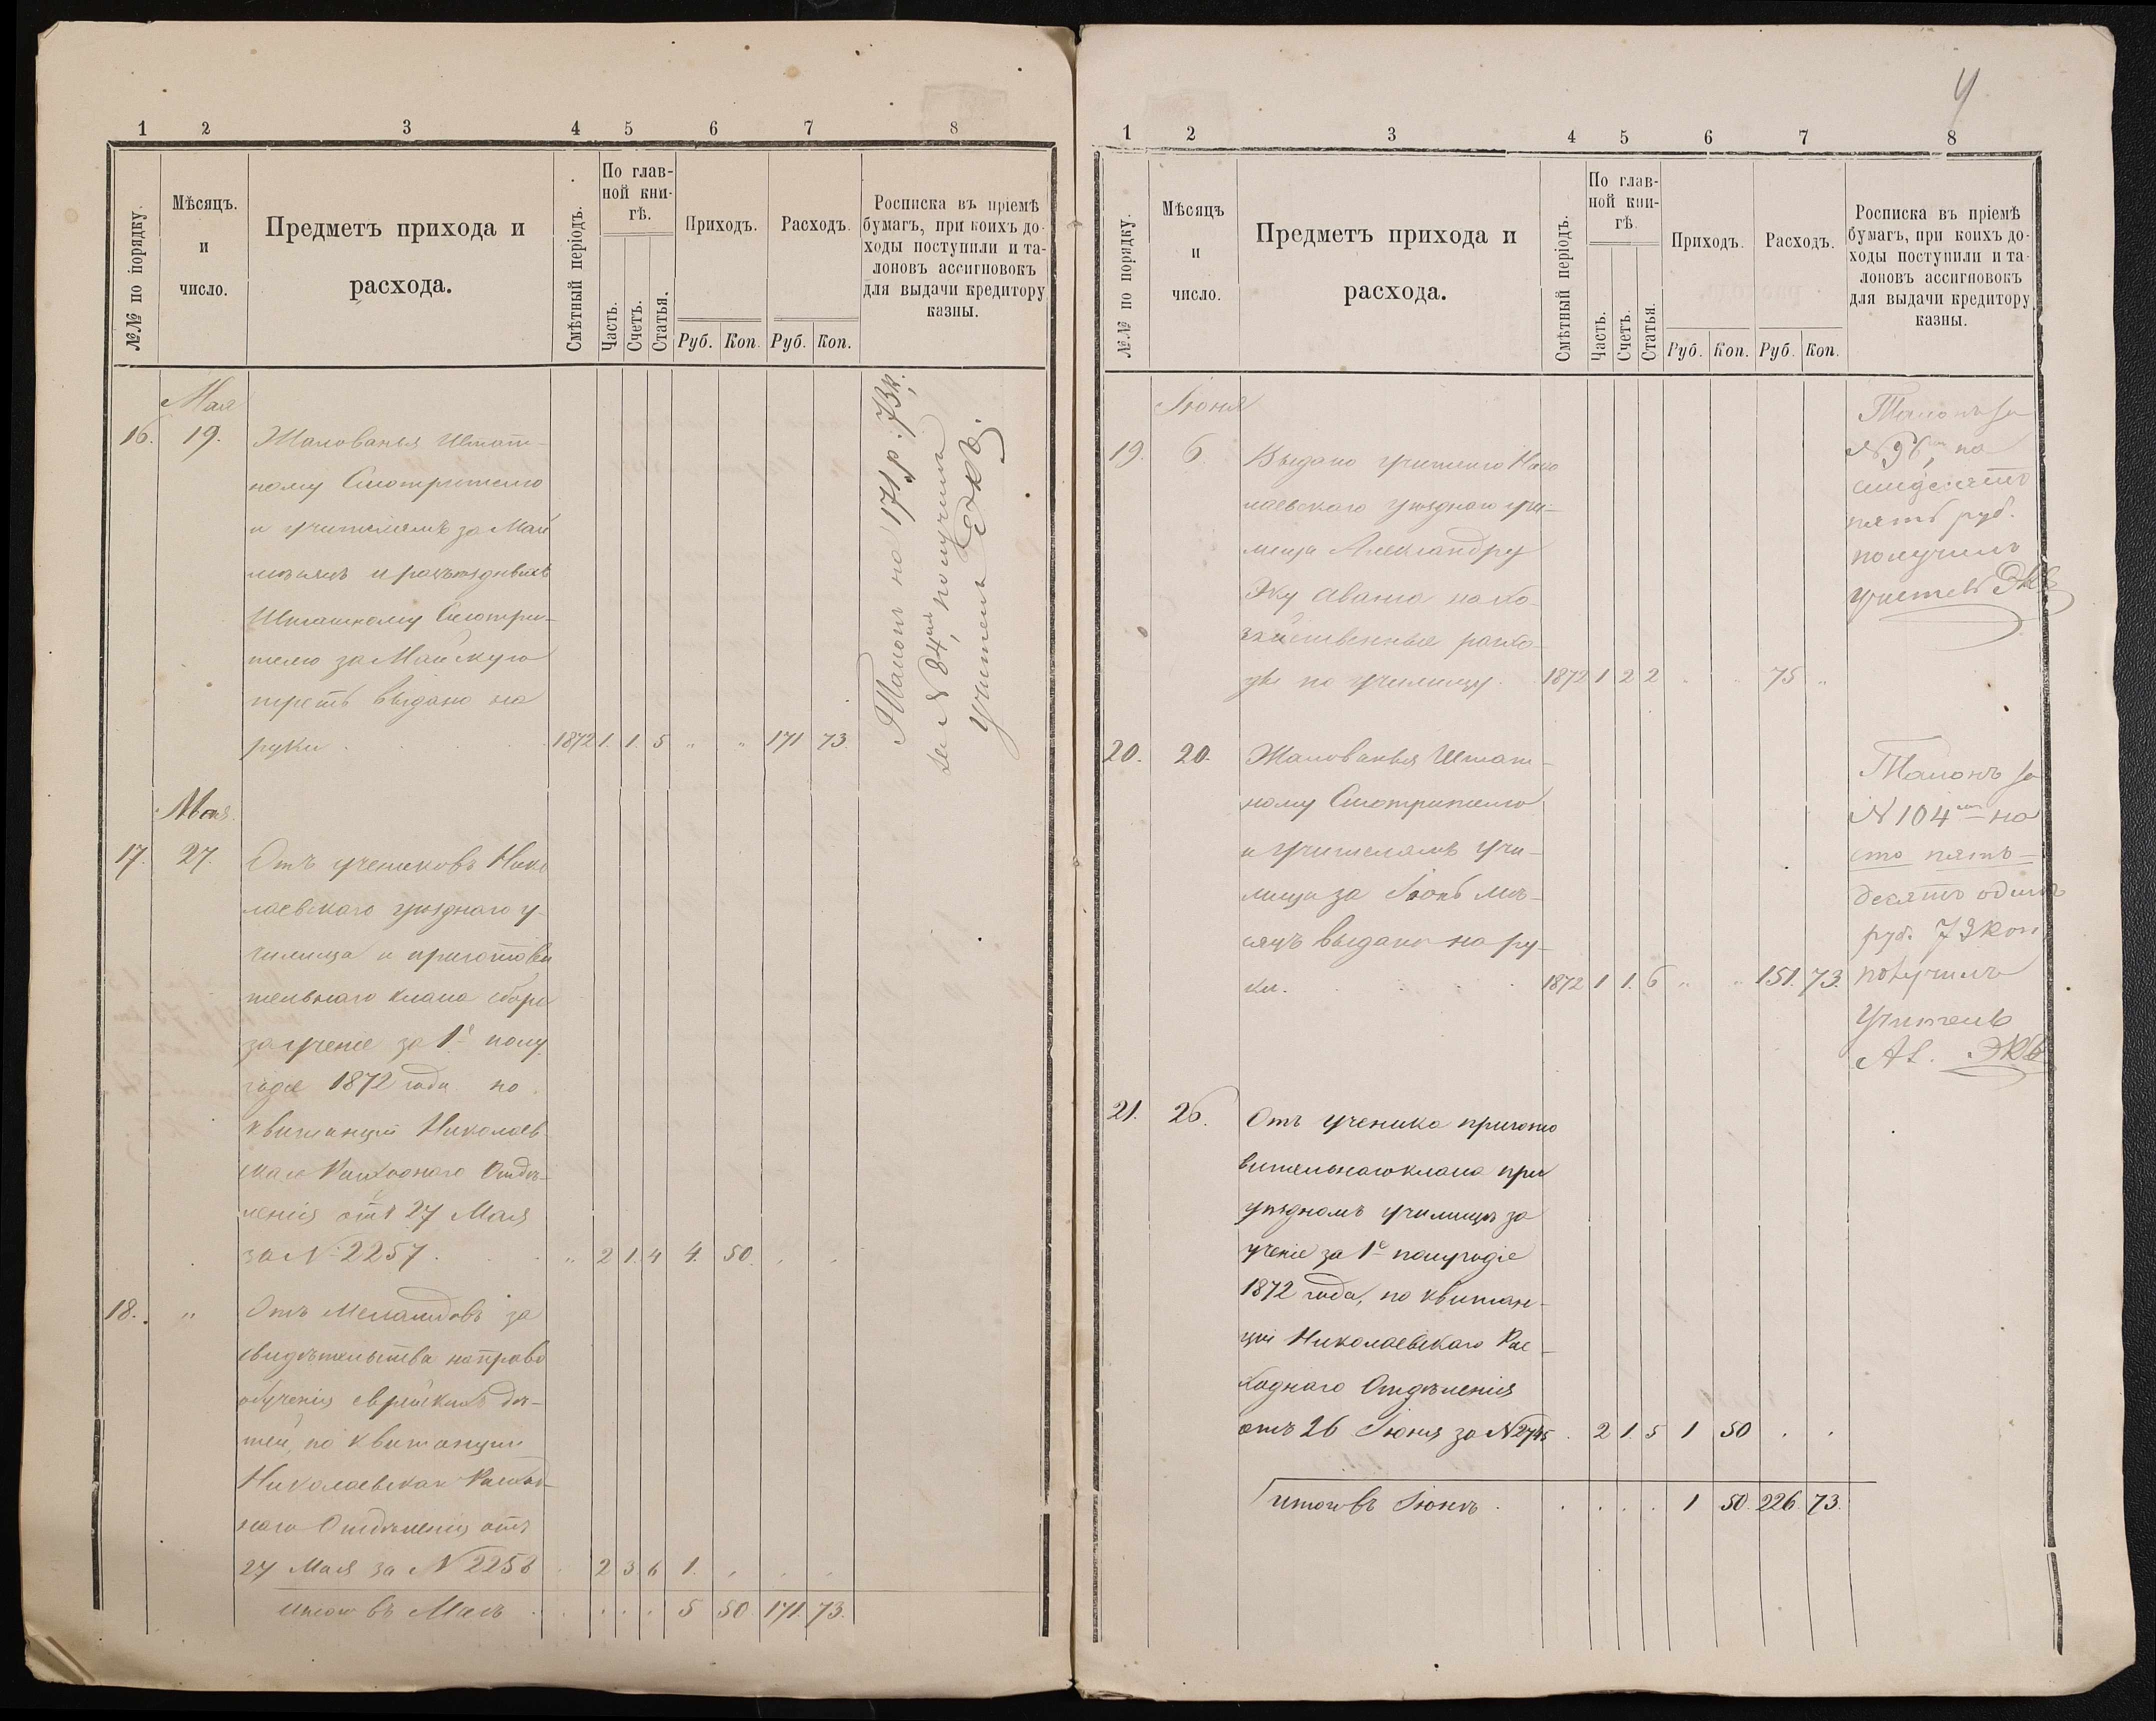 1 2 3 4 5 6 7 8
№№ по порядку.
Мѣсяцъ.
и
число.
Предметъ прихода и
расхода.
Смѣтный періодъ.
По глав-
ной кни-
гѣ.
Часть.
Счетъ.
Статья.
Приходъ.
Руб. Коп.
Расходъ.
Руб. Коп.
Росписка въ пріемѣ
бумагъ, при коихъ до-
ходы поступили и та-
лоновъ ассигновокъ
для выдачи кредитору
казны.
Мая
16. 19. Жалованья Штат-
ному Смотрителю
и учителямъ за Май
мѣсяцъ и разъѣздныхъ
Штатному Смотри-
телю за Майскую
треть выдано на
руки 1872 1. 1. 5 „ „ 171 73.
Талонъ на 171 р. 73 к.
за № 84, получилъ
Учитель Экъ.
Мая
17. 27. Отъ учениковъ Нико
лаевскаго уѣзднаго у-
чилища и приготови
тельнаго класа сбора
за ученіе за 1е полу
годіе 1872 года по
квитанціи Николаев-
скаго Расходнаго Отдѣ-
ленія отъ 27 Мая
за № 2257. „ 2 1. 4 4. 50. . .
18. „ Отъ Меламдовъ за
свидѣтельства на право
обученія еврейскихъ дѣ-
тей, по квитанціи
Николаевскаго Расход-
наго Отдѣленія отъ
27 Мая за № 2258 2 3 6 1.
Итого въ Маѣ 5 50 171 73.
4
1 2 3 4 5 6 7 8
№№ по порядку.
Мѣсяцъ
и
число.
Предметъ прихода и
расхода.
Смѣтный періодъ.
По глав-
ной кни-
гѣ.
Часть.
Счетъ.
Статья.
Приходъ.
Руб. Коп.
Расходъ.
Руб. Коп.
Росписка въ пріемѣ
бумагъ, при коихъ до-
ходы поступили и та-
лоновъ ассигновокъ
для выдачи кредитору
казны.
Іюня
19. 6. Выдано учителю Нико
лаевскаго уѣзднаго учи-
лища Александру
Эку аванса на хо-
зяйственные расхо-
ды по училищу. 1872 1 2 2 . . 75 „
Талонъ за
№ 96, на
семдесятъ
пять руб.
получилъ
учитель Экъ
20. 20. Жалованья Штат-
ному Смотрителю
и Учителямъ учи-
лища за Іюнь мѣ-
сяцъ выдано на ру-
ки. 1872 1 1. 6 „ „ 151. 73.
Талонъ за
№ 104 на
сто пять-
десятъ одинъ
руб. 73 коп
получилъ
Учитель
Ал. Экъ
21. 26. Отъ ученика пригото
вительнаго класа при
уѣздномъ училищѣ за
ученіе за 1е полугодіе
1872 года, по квитан-
ціи Николаевскаго Рас-
ходнаго Отдѣленія
отъ 26 Іюня за № 2745 . 2 1. 5 1 50 . .
Итого въ Іюнѣ 1 50. 226. 73.